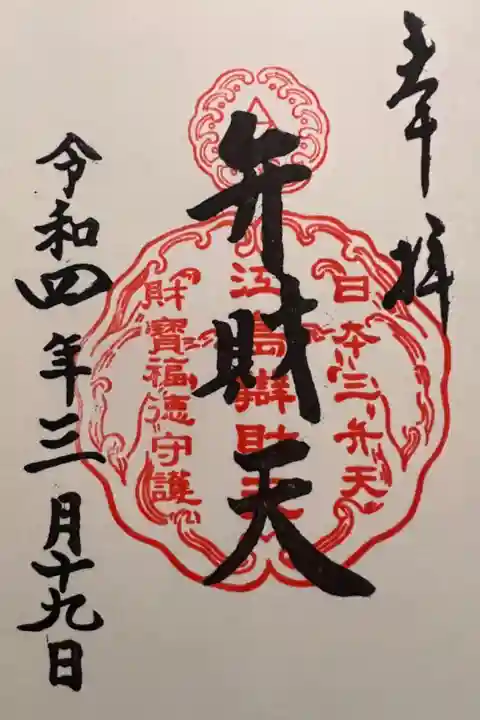 奉拝
日本三弁天
弁財天
江島辯財天
財寶福徳守護
令和四年三月十九日